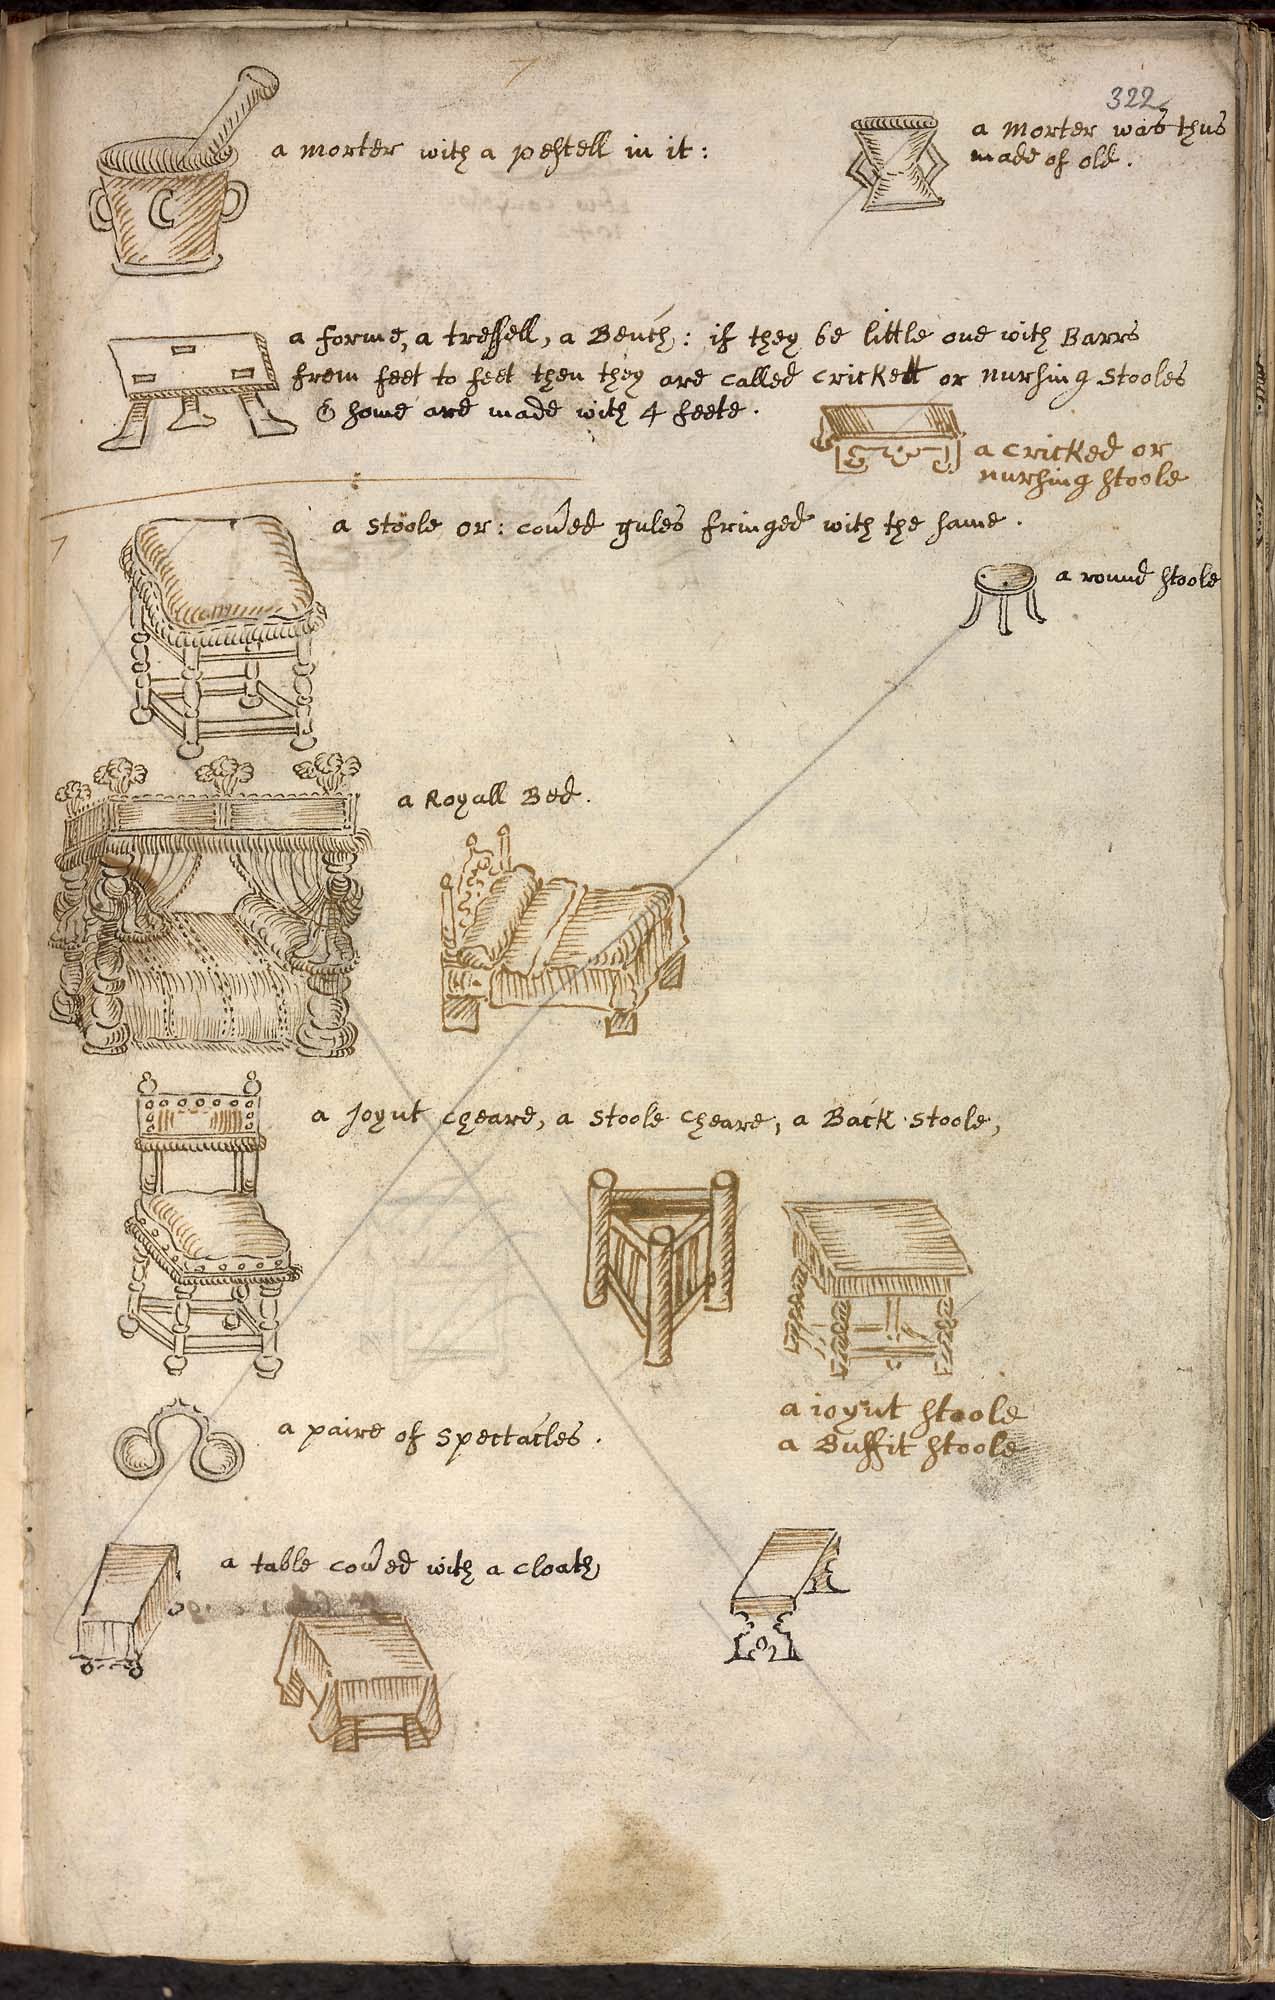 322
a morter with a pestell in it:
a morter was thus
made of old.
a forme, a tressell, a Bench: if they be little one with Barrs
from feet to feet then they are called crickett or nursing stooles
& some are made with 4 feete.
a cricked or
nursing stoole
a stoole or: cou'ed gules fringed with the same.
a round stoole
a Royall Bed.
a Joynt cheare, a stoole cheare, a Back stoole,
a ioynt stoole
a Buffit stoole
a paire of spectacles.
a table cou'ed with a cloath